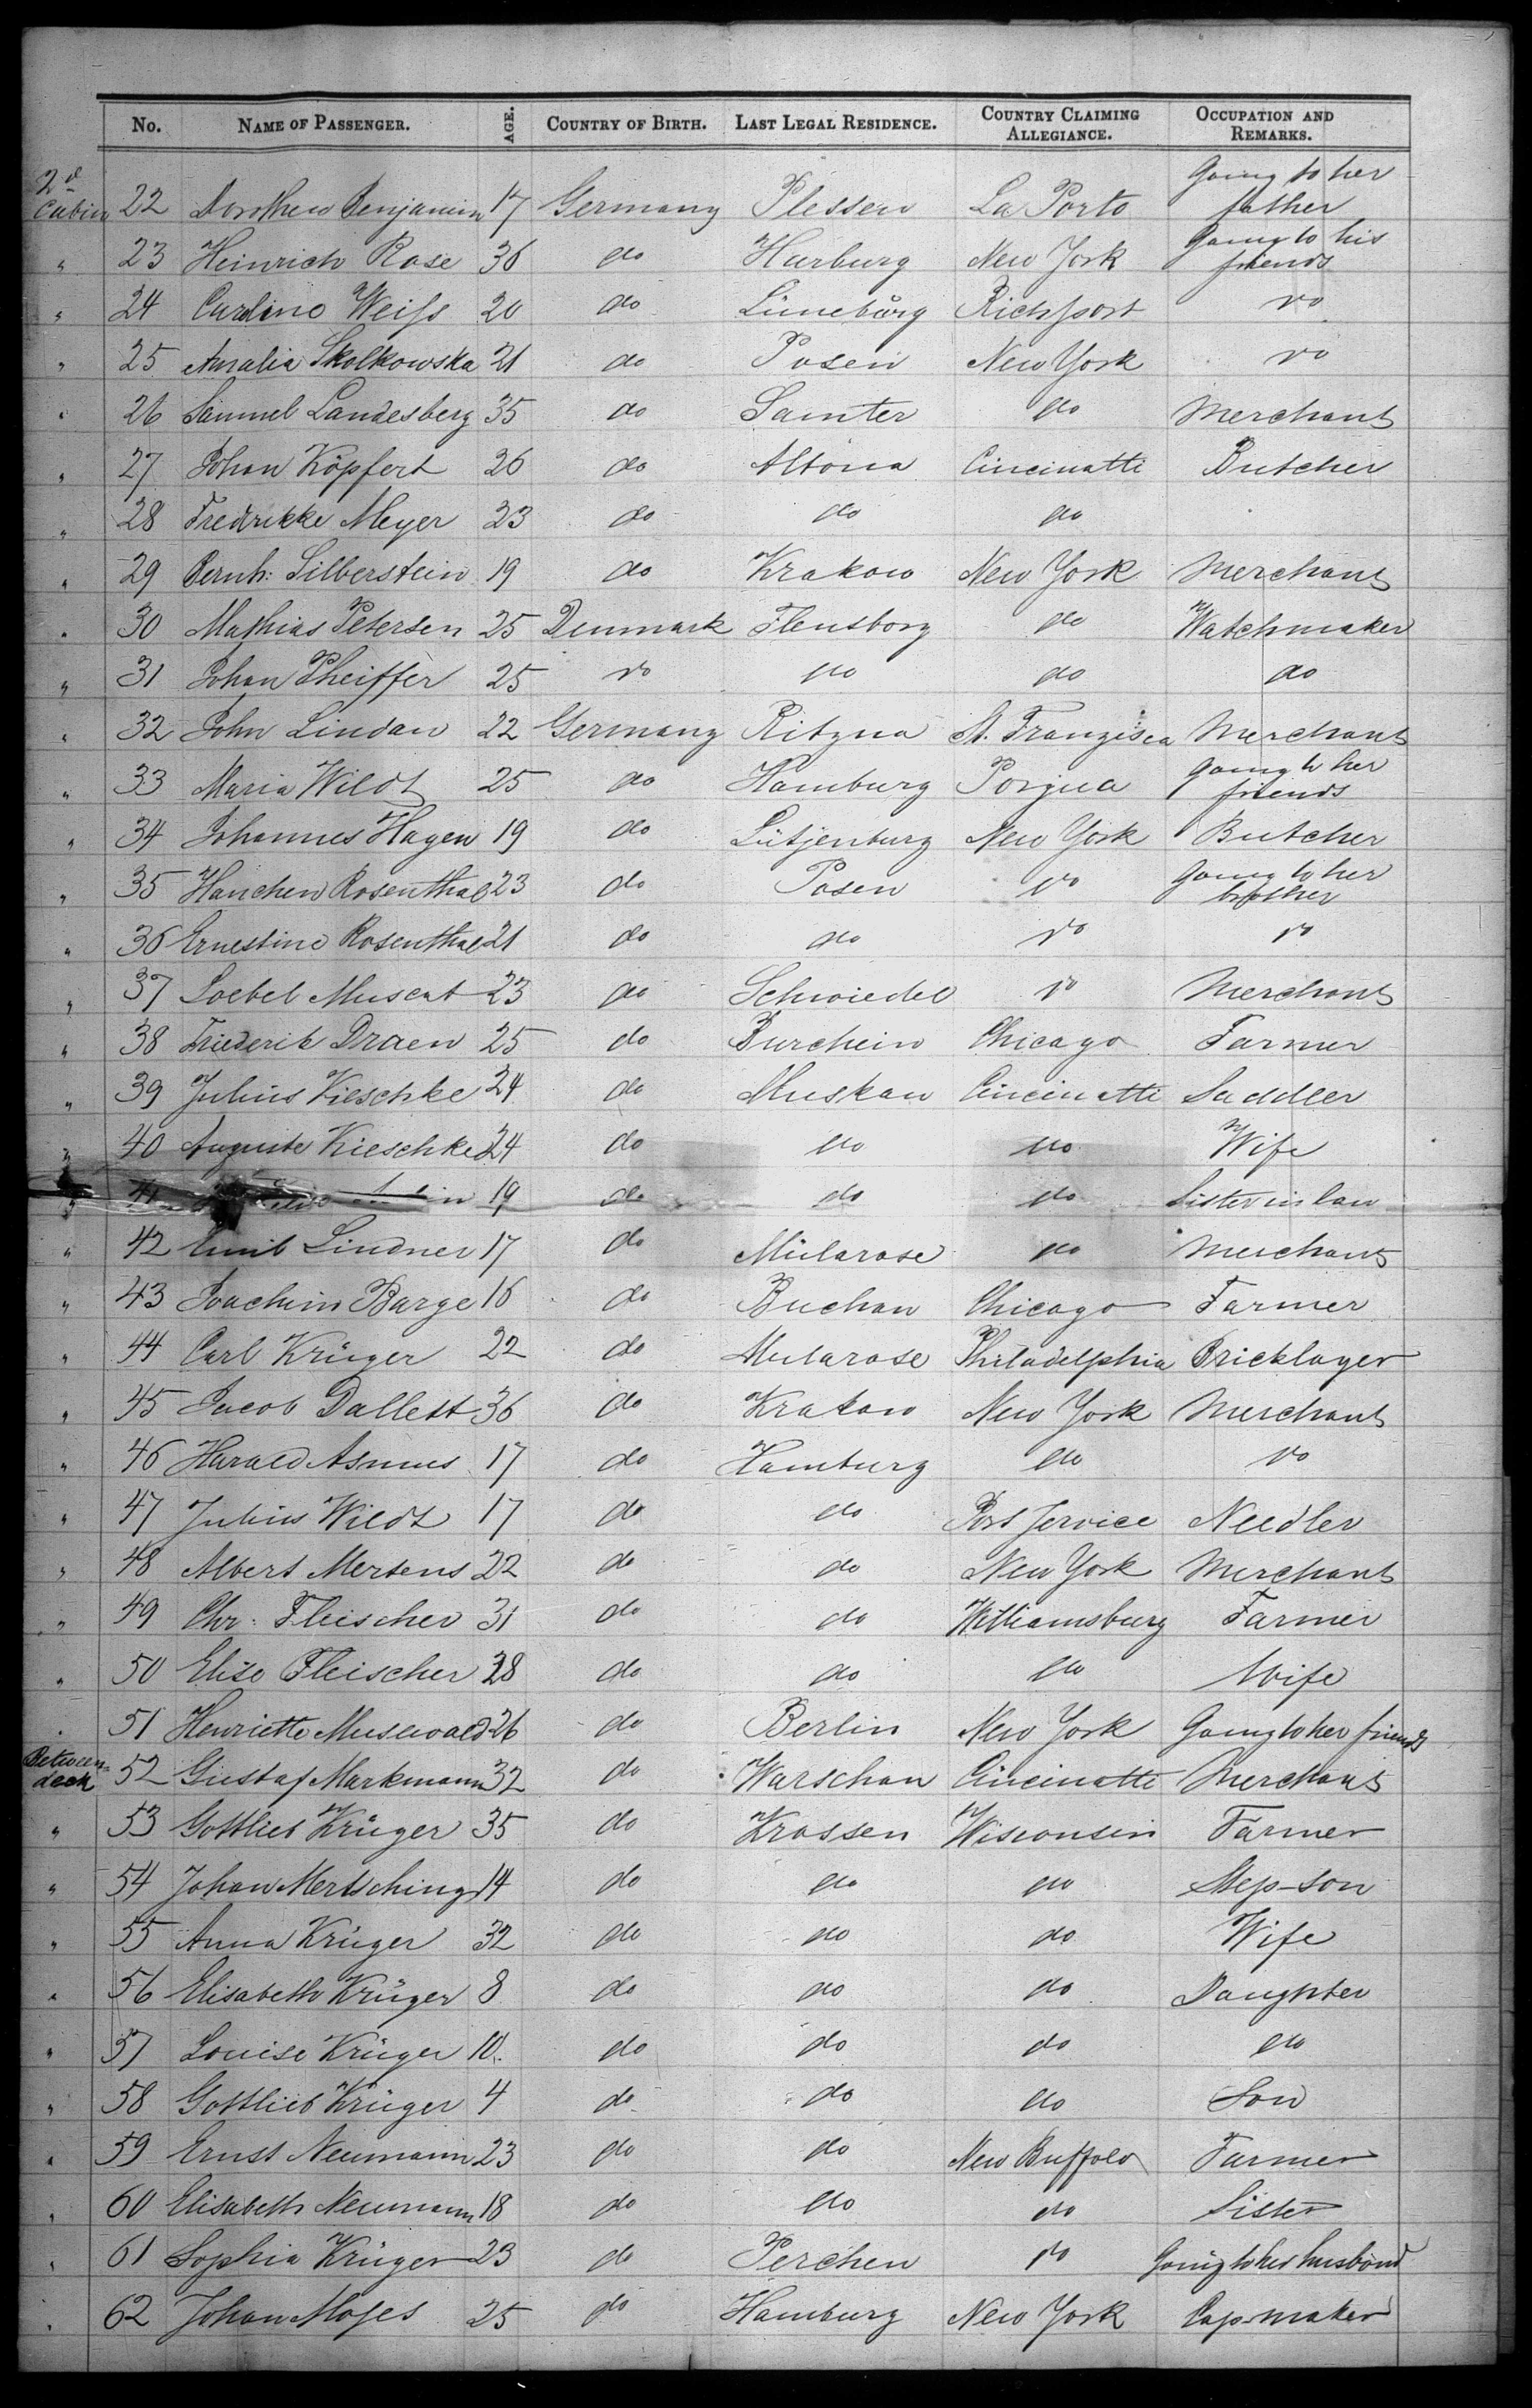 No. NAME OF PASSENGER. AGE. COUNTRY OF BIRTH. LAST LEGAL RESIDENCE. COUNTRY CLAIMING ALLEGIANCE. OCCUPATION AND REMARKS.
2d Cabin 22 Dorothea Benjamin 17 Germany Plessen La Porto Going to her father
" 23 Heinrich Rose 36 do Harburg New York Going to his friends
" 24 Carline Weiss 20 do Lüneburg Richfport do
" 25 Amalia Skolkowska 21 do Posen New York do
" 26 Samuel Landesberg 35 do Samter do Merchant
" 27 Johan Köpfert 26 do Altona Cincinatti Butcher
" 28 Fredrikke Meyer 23 do do do
" 29 Bernh: Silberstein 19 do Krakow New York Merchant
" 30 Mathias Petersen 25 Denmark Flensborg do Watchmaker
" 31 Johan Pheiffer 25 do do do do
" 32 John Lindau 22 Germany Ritzna St. Franzisca Merchant
" 33 Maria Wildt 25 do Hamburg Porjua going to her friends
" 34 Johannes Hagen 19 do Lütjenburg New York Butcher
" 35 Hanchen Rosenthal 23 do Posen do Going to her brother
" 36 Ernestine Rosenthal 21 do do do do
" 37 Loebel Muscat 23 do Schwiedel do Merchant
" 38 Friederik Draen 25 do Burchein Chicago Farmer
" 39 Julius Kieschke 24 do Muskau Cincinatti Saddler
" 40 Auguste Kieschke 24 do do do Wife
" 41 19 do do do Sister in law
" 42 Emil Lindner 17 do Mülarose do Merchant
" 43 Joachim Barge 16 do Buchau Chicago Farmer
" 44 Carl Krüger 22 do Mularose Philadelphia Bricklayer
" 45 Jacob Dallett 36 do Krakow New York Merchant
" 46 Harald Asmus 17 do Hamburg do do
" 47 Julius Wildt 17 do do Port Jervice Needler
" 48 Albert Mertens 22 do do New York Merchant
" 49 Chr: Fleischer 31 do do Williamsburg Farmer
" 50 Elise Fleischer 28 do do do Wife
" 51 Henriette Musewald 26 do Berlin New York Going to her friends
Between-deck 52 Gustaf Markmann 32 do Warschau Cincinatti Merchant
" 53 Gottlieb Krüger 35 do Krossen Wisconsin Farmer
" 54 Johan Mertsching 14 do do do Step-son
" 55 Anna Krüger 32 do do do Wife
" 56 Elisabeth Krüger 8 do do do Daughter
" 57 Louise Krüger 10 do do do do
" 58 Gottlieb Krüger 4 do do do Son
" 59 Ernst Neumann 23 do do New Buffolo Farmer
" 60 Elisabeth Neumann 18 do do do Sister
" 61 Sophia Krüger 23 do Perchen do Going to her husband
" 62 Johan Moses 25 do Hamburg New York Cap-maker